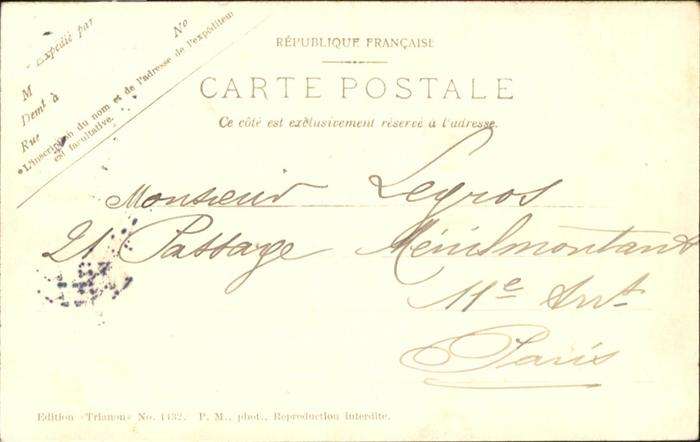 Expédié par
M No
Demt à
Rue
*L'inscription du nom et de l'adresse de l'expéditeur
est facultative.
RÉPUBLIQUE FRANÇAISE
CARTE POSTALE
Ce côté est exclusivement réservé à l'adresse.
Monsieur Legros
21 Passage Ménilmontant
11e Arrt
Paris
Edition «Trianon» No. 1432. P. M., phot., Reproduction interdite.